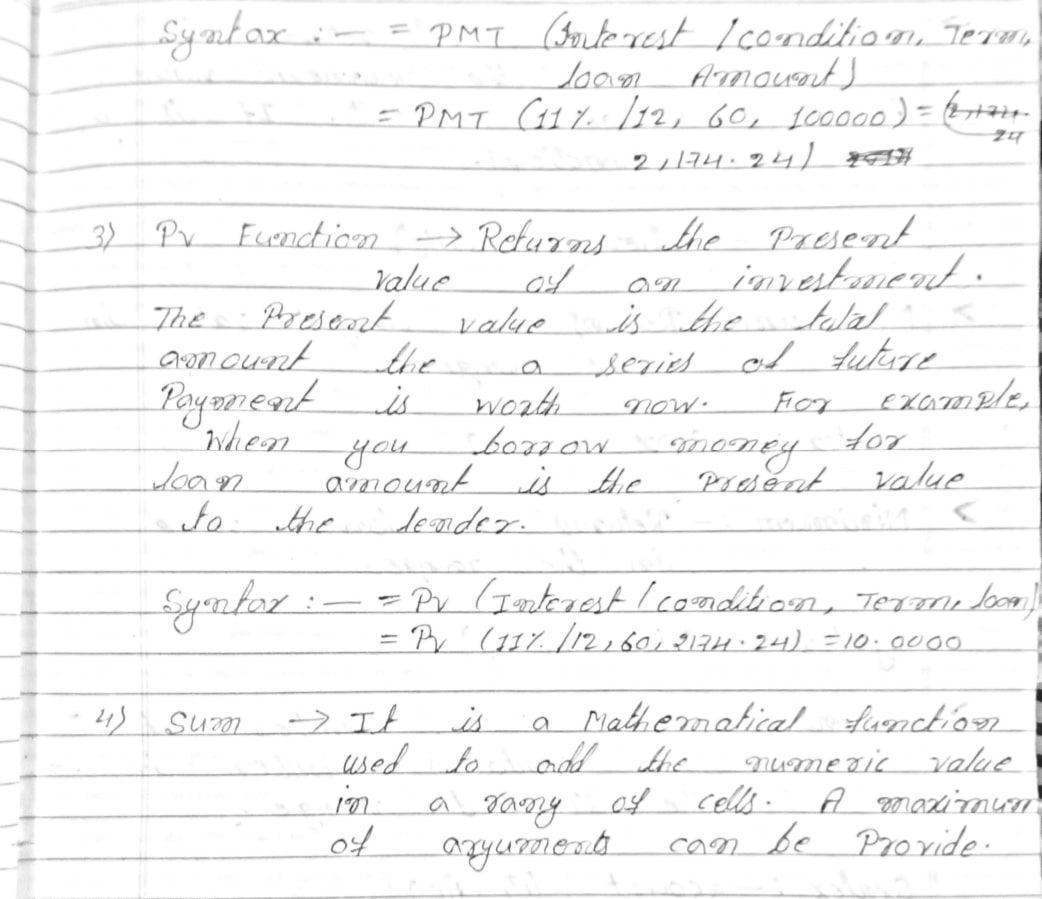 Syntax :— = PMT (Interest / condition, Term,
loan Amount)
= PMT (11%. /12, 60, 100000) =
24
2,174.24)
3) Pv Function → Returns the Present
value of an investment.
The Present value is the total
amount the a series of future
Payment is worth now. For example,
When you borrow money for
loan amount is the Present value
to the lender.
Syntax :— = Pv (Interest / condition, Term, loan)
= Pv (11%. /12, 60, 2174.24) = 10.0000
4) Sum → It is a Mathematical function
used to add the numeric value
in a rang of cells. A maximum
of arguments can be Provide.